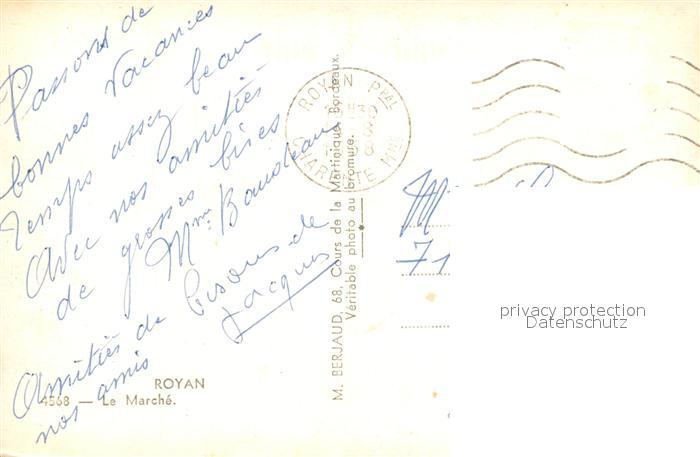 Passons de
bonnes vacances
Temps assez beau
Avec nos amitiés
de grosses bises
Mme Baudeau
bisous de
Jacques
Amitiés de
nos amis
ROYAN
4568 — Le Marché.
M. BERJAUD, 68, Cours de la Martinique, Bordeaux.
Véritable photo au bromure.
ROYAN Ppal
CHARENTE Mme
71
privacy protection
Datenschutz